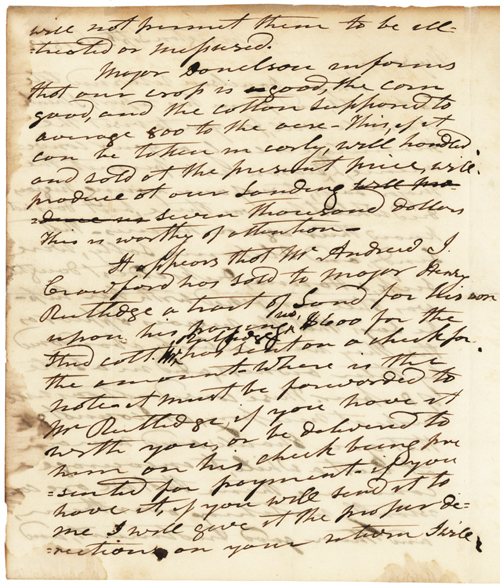 will not permit them to be ill=
=treated or mepured.
Major Donelson informs
that our crop is good, the corn
good, and the cotton supposed to
average 800 to the acre - This, if it
can be taken in early, will handled
and sold at the present price, will
produce at our Landing will pro
=duce us seven thousand dollars
This is worthy of attention -
It appears that Mr Andrew J.
Crawford has sold to major Henry
Rutledge a tract of Land for his son
upon his paying me, $1600 for the
Stud colt. Mr Rutledge has sent on a check for
the amount - Where is the
note - it must be forwarded to
Mr Rutledge if you have it
with you, or be delivered to
him on his check being pre
=sented for payment - if you
have it, if you will send it to
me I will give it the proper de=
=rections, on your return I will